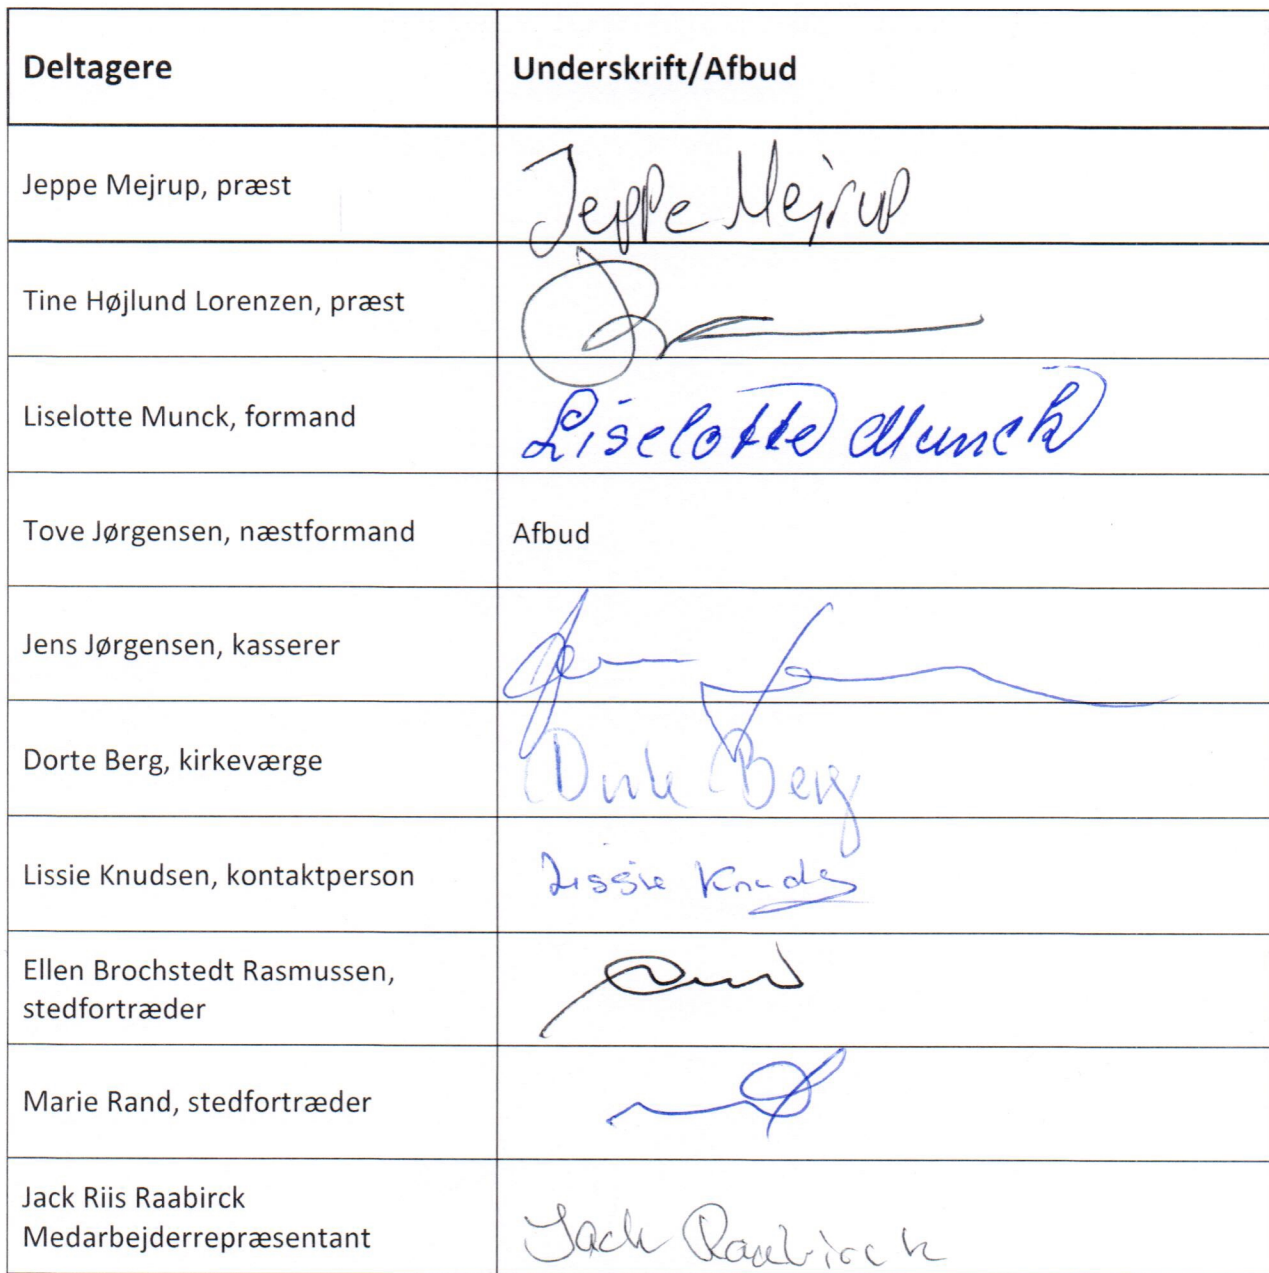 Deltagere
Underskrift/Afbud
Jeppe Mejrup, præst
Jeppe Mejrup
Tine Højlund Lorenzen, præst
Liselotte Munck, formand
Liselotte Munck
Tove Jørgensen, næstformand
Afbud
Jens Jørgensen, kasserer
Dorte Berg, kirkeværge
Berg
Lissie Knudsen, kontaktperson
Lissie
Ellen Brochstedt Rasmussen,
stedfortræder
Marie Rand, stedfortræder
Jack Riis Raabirck
Medarbejderrepræsentant
Jack Raabirck